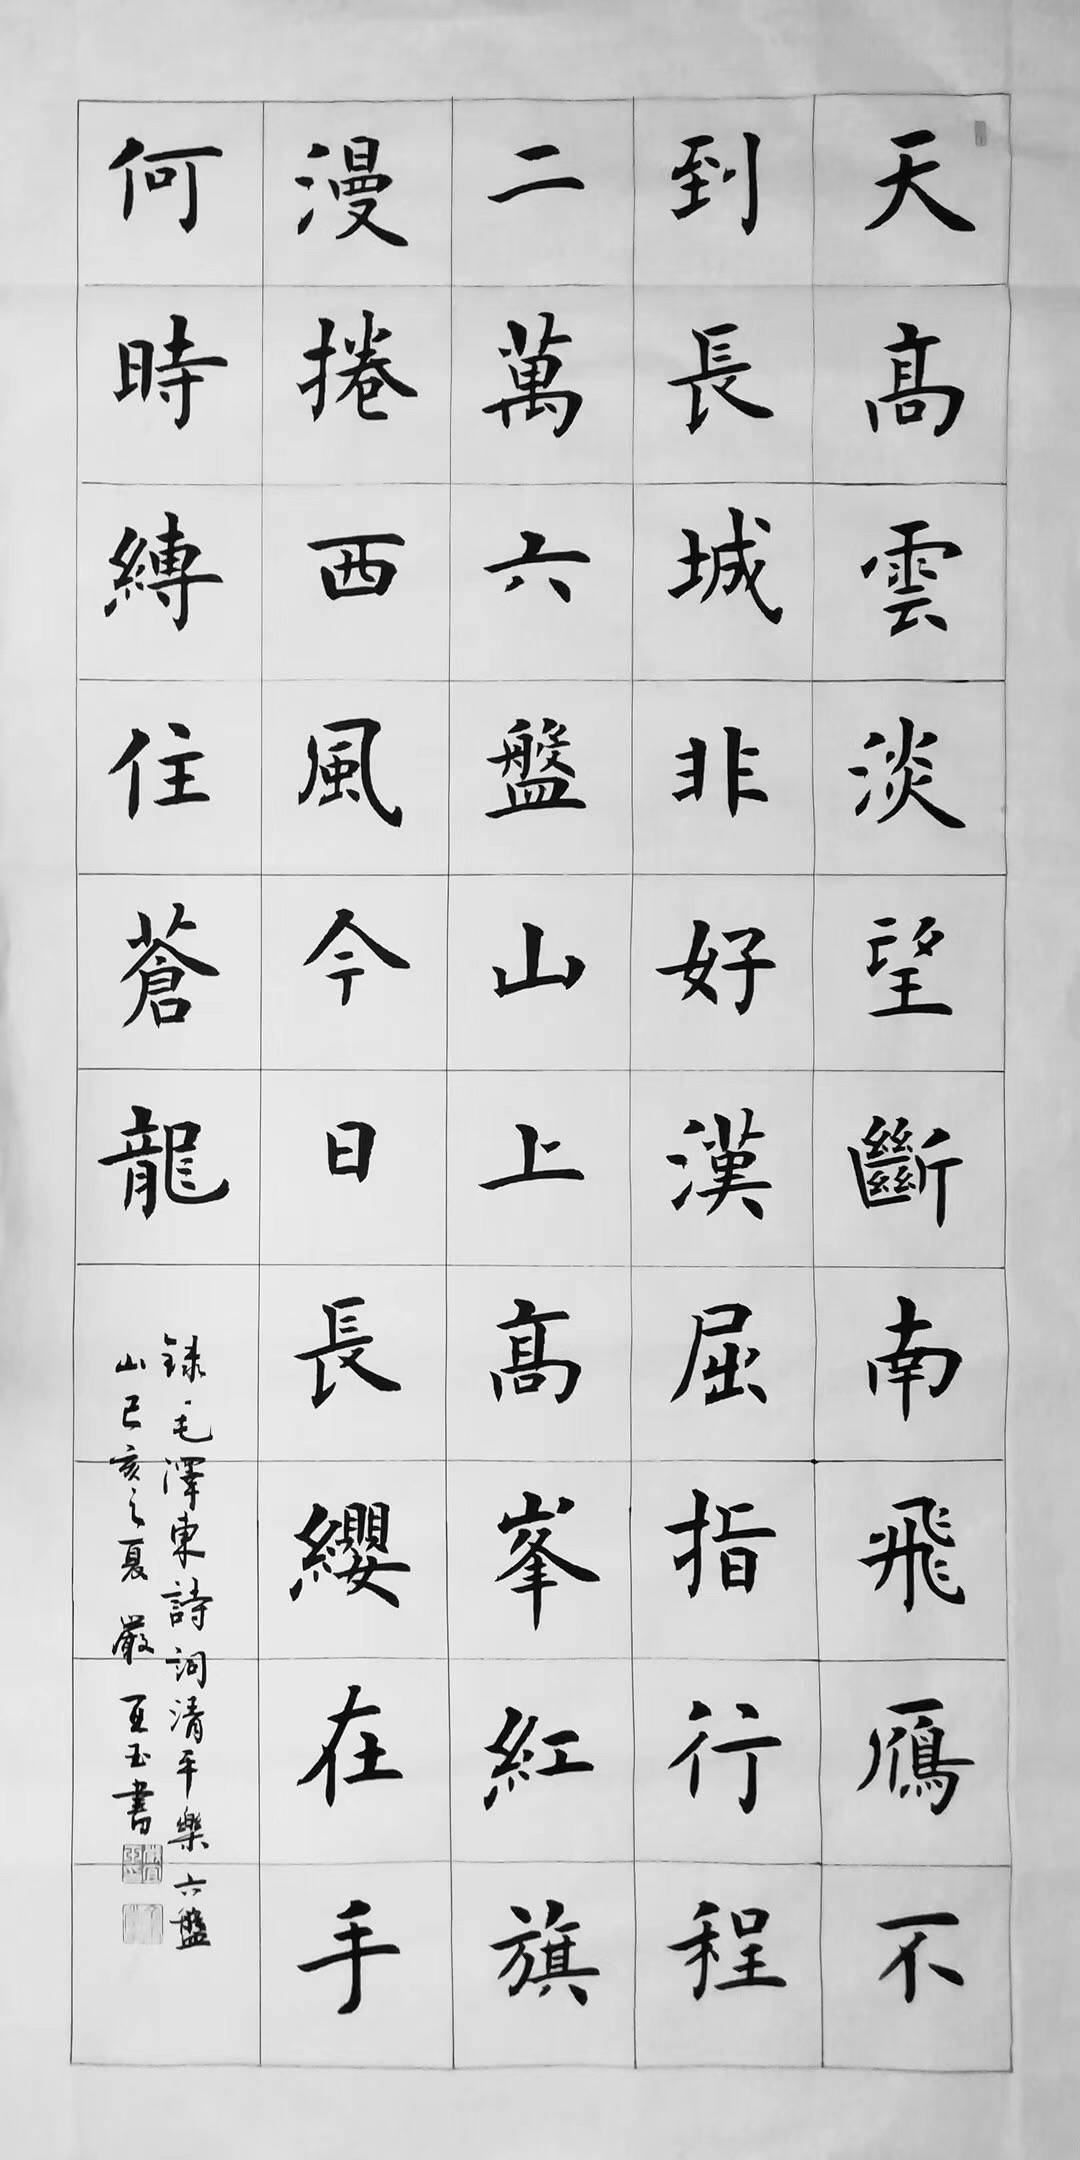 天高雲淡望斷南飛鴈不
到長城非好漢屈指行程
二萬六盤山上高峯紅旗
漫捲西風今日長纓在手
何時縛住蒼龍
録毛澤東詩詞清平樂六盤
山己亥之夏嚴亞玉書